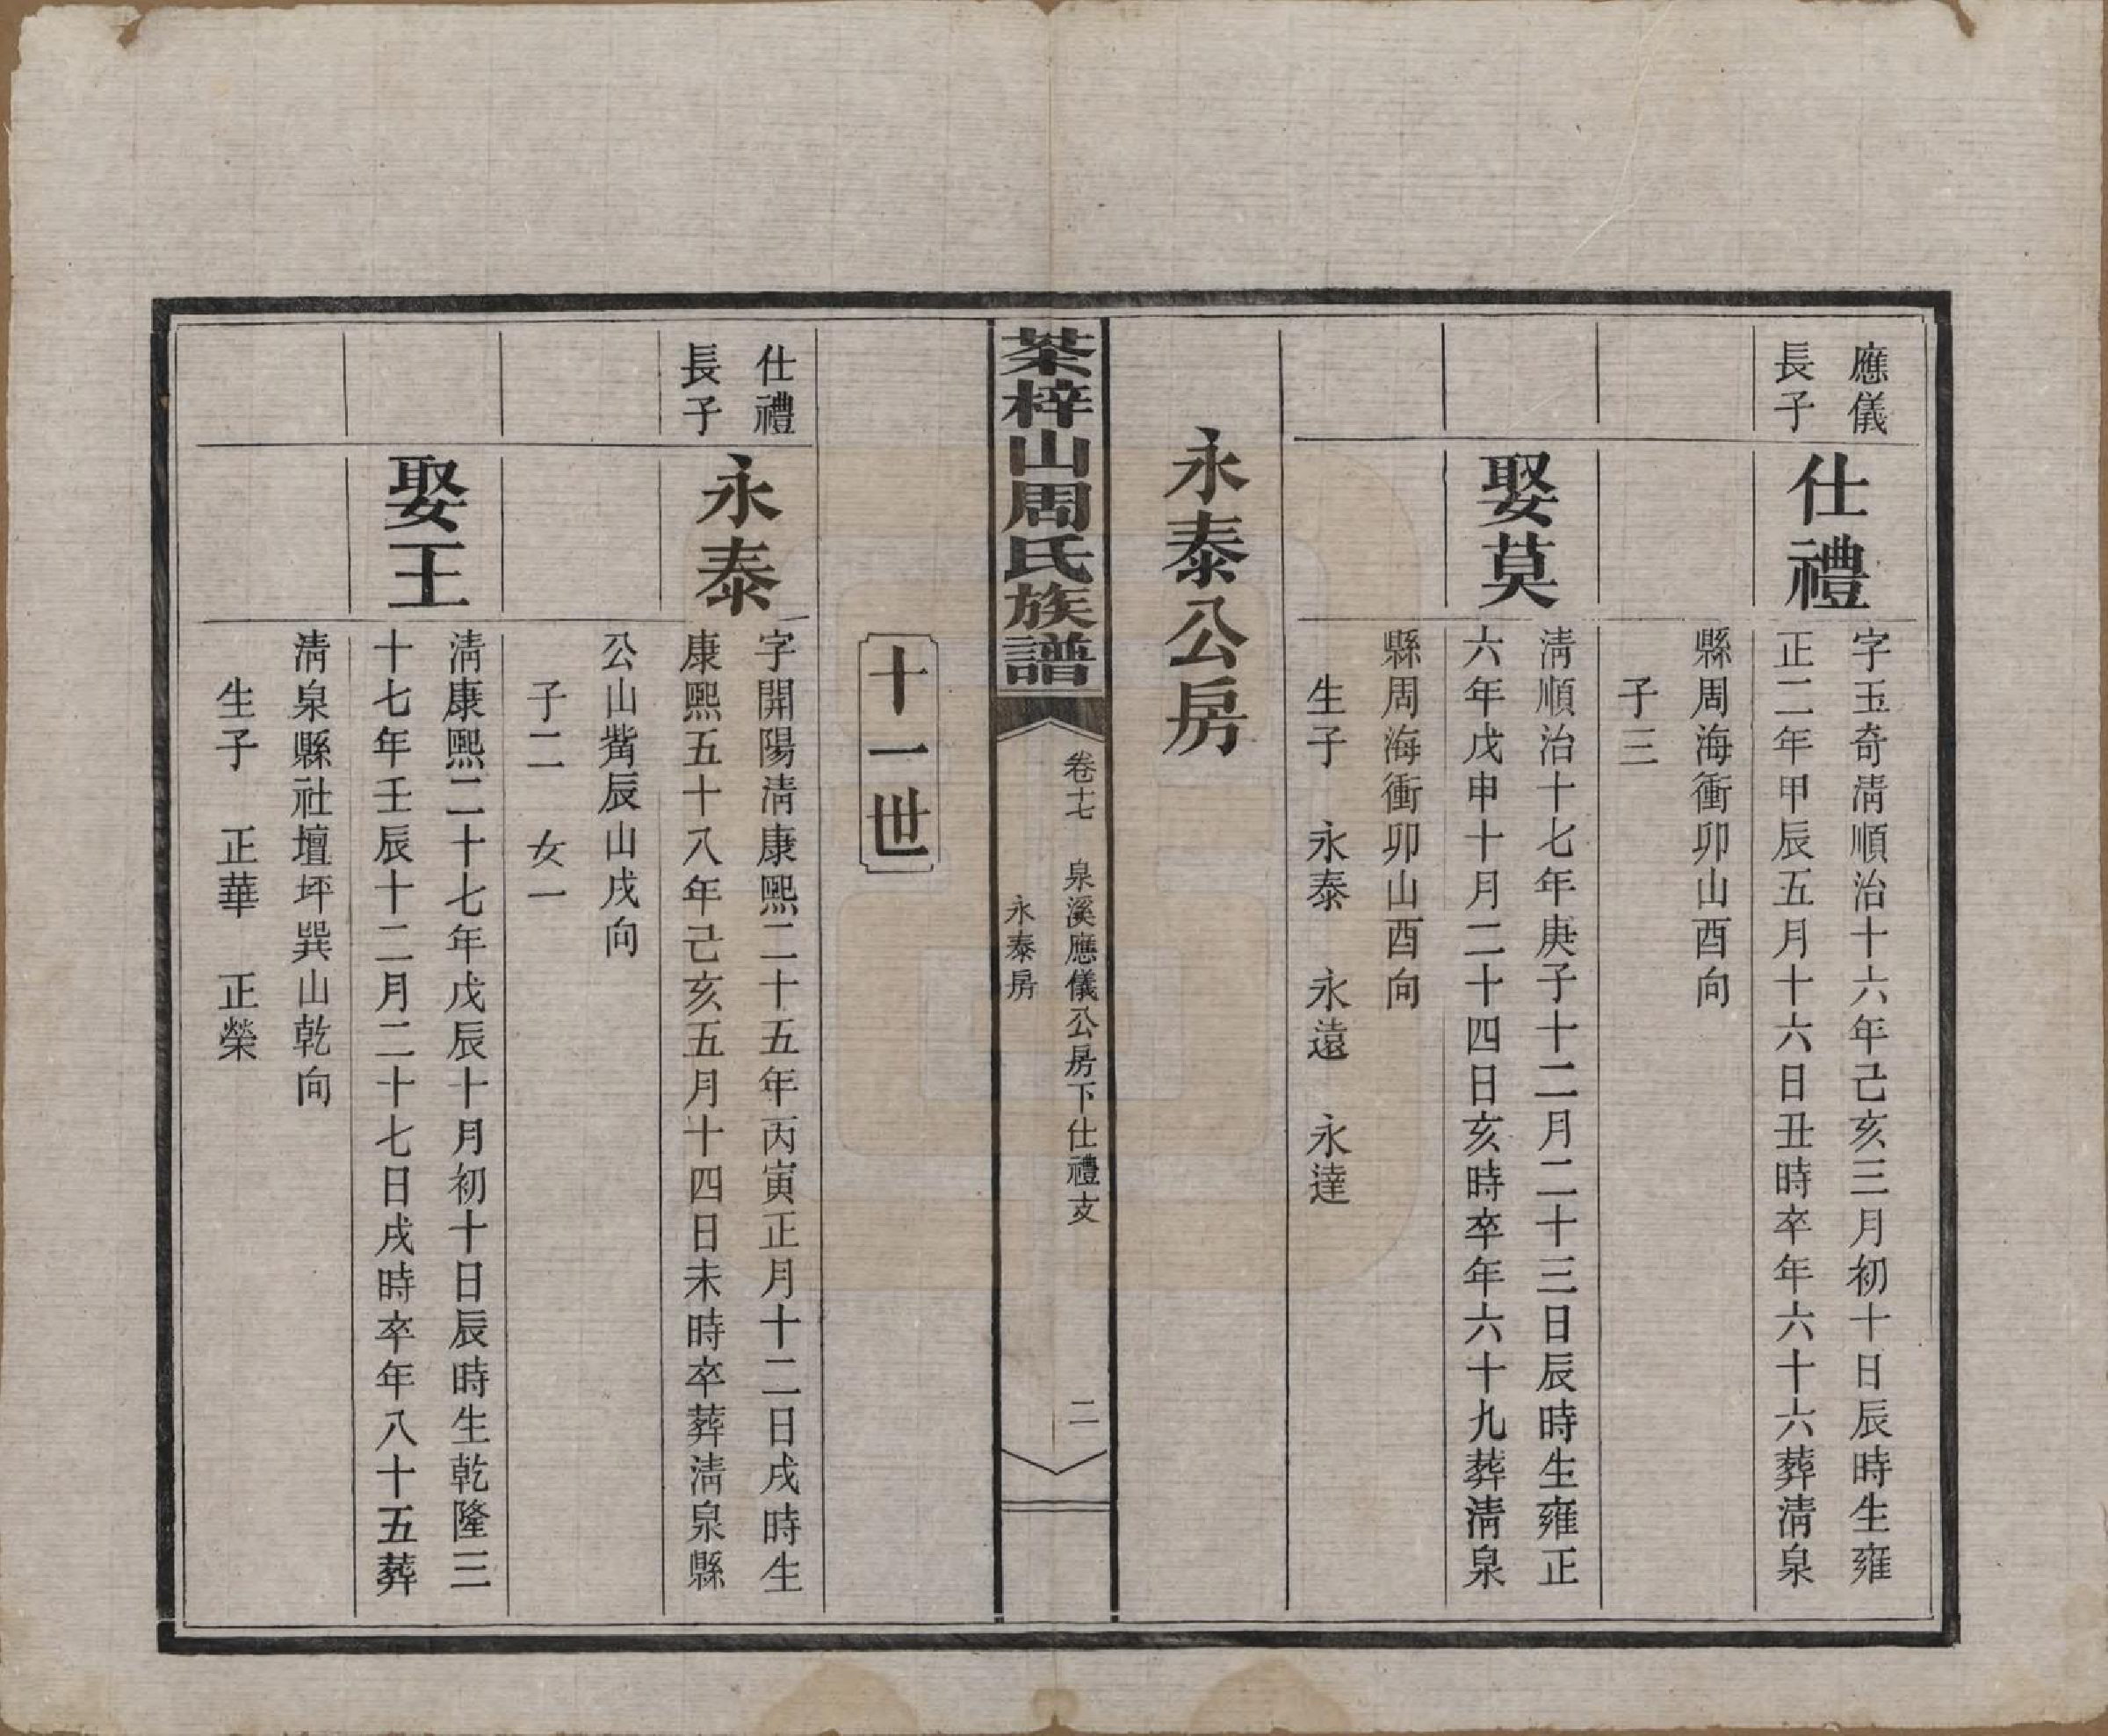 應儀
長子
仕禮
字玉奇淸順治十六年己亥三月初十日辰時生雍
正二年甲辰五月十六日丑時卒年六十六葬淸泉
縣周海衝卯山酉向
子三
娶莫
淸順治十七年庚子十二月二十三日辰時生雍正
六年戊申十月二十四日亥時卒年六十九葬淸泉
縣周海衝卯山酉向
生子　永泰　永遠　永達
永泰公房
茶梓山周氏族譜
卷十七　泉溪應儀公房下仕禮支
永泰房
二
十一世
仕禮
長子
永泰
字開陽淸康熙二十五年丙寅正月十二日戌時生
康熙五十八年己亥五月十四日未時卒葬淸泉縣
公山觜辰山戌向
子二　女一
娶王
淸康熙二十七年戊辰十月初十日辰時生乾隆三
十七年壬辰十二月二十七日戌時卒年八十五葬
淸泉縣社壇坪巽山乾向
生子　正華　正榮